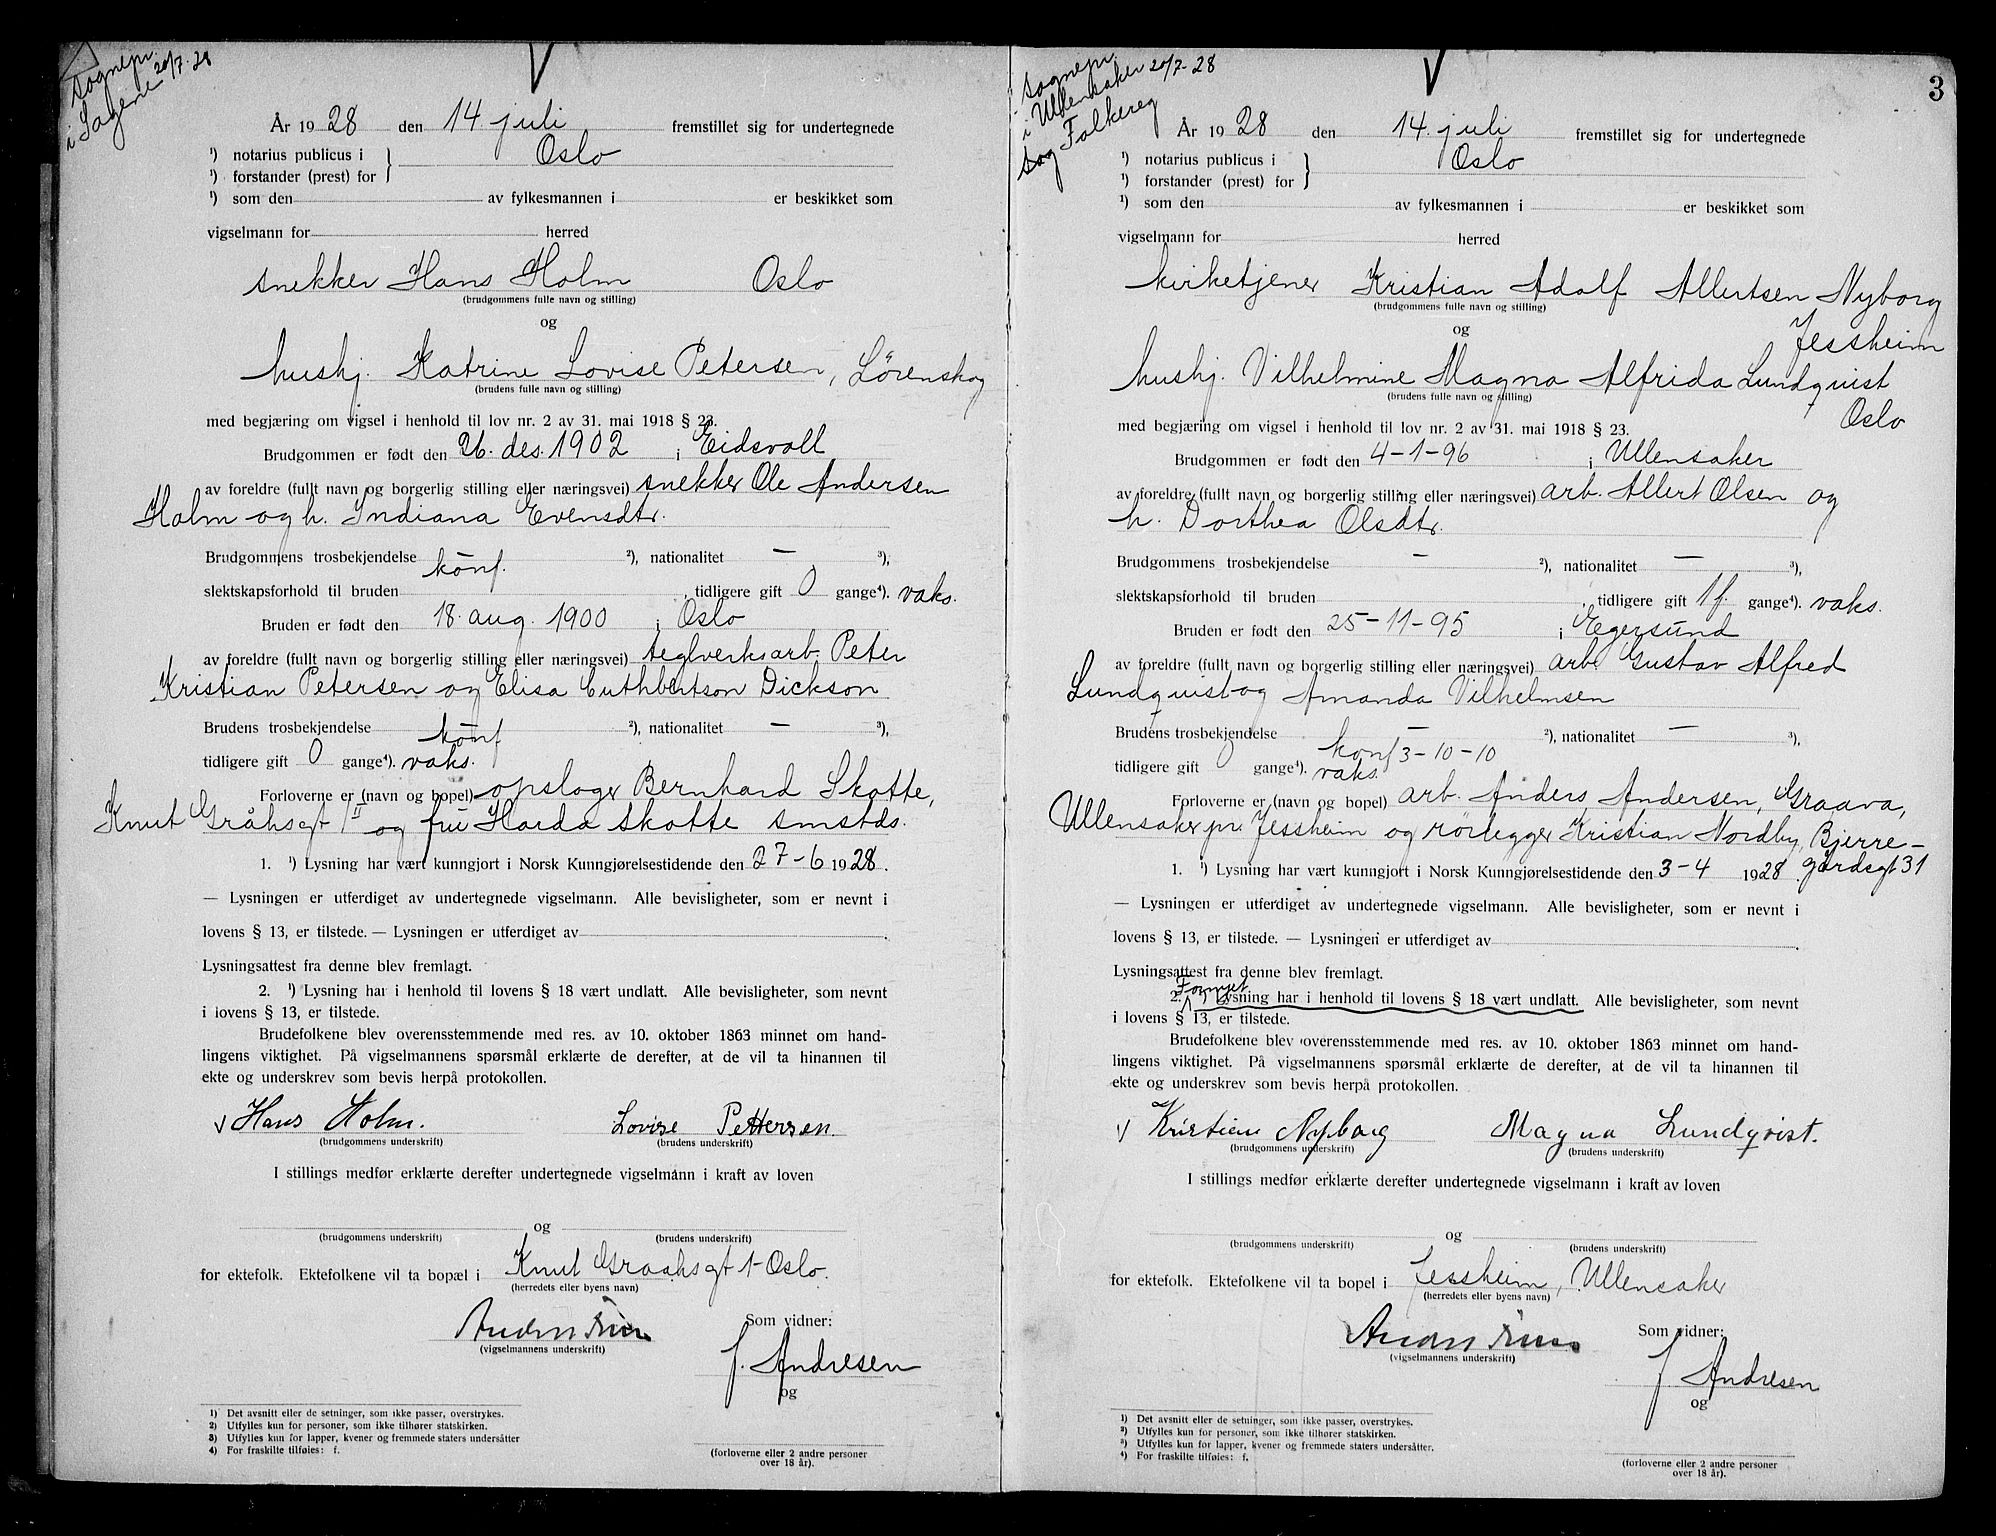 sognepr.
i Sagene 20/7-28
År 1928 den 14. juli fremstillet sig for undertegnede
¹) notarius publicus i } Oslo
¹) forstander (prest) for
¹) som den av fylkesmannen i er beskikket som
vigselmann for herred
snekker Hans Holm Oslo
(brudgommens fulle navn og stilling)
og
hushj. Katrine Lovise Petersen, Lørenskog
(brudens fulle navn og stilling)
med begjæring om vigsel i henhold til lov nr. 2 av 31. mai 1918 § 23.
Brudgommen er født den 26. des. 1902 i Eidsvoll
av foreldre (fullt navn og borgerlig stilling eller næringsvei) snekker Ole Andersen
Holm og h. Indiana Evensdtr.
Brudgommens trosbekjendelse — ²), nationalitet — ³),
konf.
slektskapsforhold til bruden , tidligere gift 0 gange⁴). vaks.
Bruden er født den 18. aug. 1900 i Oslo
av foreldre (fullt navn og borgerlig stilling eller næringsvei) teglverksarb. Peter
Kristian Petersen og Elisa Cuthbertson Dickson
Brudens trosbekjendelse — ²), nationalitet — ³),
konf
tidligere gift 0 gange⁴). vaks.
Forloverne er (navn og bopel) opslager Bernhard Skotte,
Knut Gråhsgt 1 II og fru Harda Skotte smstds.
1. ¹) Lysning har vært kunngjort i Norsk Kunngjørelsestidende den 27-6 1928.
— Lysningen er utferdiget av undertegnede vigselmann. Alle bevisligheter, som er nevnt i
lovens § 13, er tilstede. — Lysningen er utferdiget av
Lysningsattest fra denne blev fremlagt.
2. ¹) Lysning har i henhold til lovens § 18 vært undlatt. Alle bevisligheter, som nevnt
i lovens § 13, er tilstede.
Brudefolkene blev overensstemmende med res. av 10. oktober 1863 minnet om hand-
lingens viktighet. På vigselmannens spørsmål erklærte de derefter, at de vil ta hinannen til
ekte og underskrev som bevis herpå protokollen.
√ Hans Holm. Lovise Pettersen.
(brudgommens underskrift) (brudens underskrift)
I stillings medfør erklærte derefter undertegnede vigselmann i kraft av loven
og
(brudgommens underskrift) (brudens underskrift)
for ektefolk. Ektefolkene vil ta bopæl i Knut Graahsgt 1 - Oslo.
(herredets eller byens navn)
Som vidner:
(vigselmannens underskrift)
J. Andresen
og
1) Det avsnitt eller de setninger, som ikke passer, overstrykes.
2) Utfylles kun for personer, som ikke tilhører statskirken.
3) Utfylles kun for lapper, kvener og fremmede staters undersåtter
4) For fraskilte tilføies: f.
(forloverne eller 2 andre personer
over 18 år).
3
sognepr.
i Ullensaker 20/7-28
og Folkereg
År 1928 den 14. juli fremstillet sig for undertegnede
¹) notarius publicus i } Oslo
¹) forstander (prest) for
¹) som den av fylkesmannen i er beskikket som
vigselmann for herred
kirketjener Kristian Adolf Allertsen Nyborg
(brudgommens fulle navn og stilling)
og Jessheim
hushj. Vilhelmine Magna Alfrida Lundquist
(brudens fulle navn og stilling)
Oslo
med begjæring om vigsel i henhold til lov nr. 2 av 31. mai 1918 § 23.
Brudgommen er født den 4-1-96 i Ullensaker
av foreldre (fullt navn og borgerlig stilling eller næringsvei) arb. Allert Olsen og
h. Dorthea Olsdtr.
Brudgommens trosbekjendelse — ²), nationalitet — ³),
slektskapsforhold til bruden , tidligere gift 1 f. gange⁴). vaks.
Bruden er født den 25-11-95 i Egersund
av foreldre (fullt navn og borgerlig stilling eller næringsvei) arb. Gustav Alfred
Lundquist og Amanda Vilhelmsen
Brudens trosbekjendelse — ²), nationalitet — ³),
konf 3-10-10
tidligere gift 0 gange⁴). vaks.
Forloverne er (navn og bopel) arb. Anders Andersen, Graava,
Ullensaker pr. Jessheim og rørlegger Kristian Nordby, Bjerre-
gårdsgt 31
1. ¹) Lysning har vært kunngjort i Norsk Kunngjørelsestidende den 3-4 1928.
— Lysningen er utferdiget av undertegnede vigselmann. Alle bevisligheter, som er nevnt i
lovens § 13, er tilstede. — Lysningen er utferdiget av
Lysningsattest fra denne blev fremlagt.
Fornyet
2. ¹) Lysning har i henhold til lovens § 18 vært undlatt. Alle bevisligheter, som nevnt
i lovens § 13, er tilstede.
Brudefolkene blev overensstemmende med res. av 10. oktober 1863 minnet om hand-
lingens viktighet. På vigselmannens spørsmål erklærte de derefter, at de vil ta hinannen til
ekte og underskrev som bevis herpå protokollen.
√ Kristian Nyborg Magna Lundqvist.
(brudgommens underskrift) (brudens underskrift)
I stillings medfør erklærte derefter undertegnede vigselmann i kraft av loven
og
(brudgommens underskrift) (brudens underskrift)
for ektefolk. Ektefolkene vil ta bopel i Jessheim, Ullensaker
(herredets eller byens navn)
Som vidner:
(vigselmannens underskrift)
J Andresen
og
¹) Det avsnitt eller de setninger, som ikke passer, overstrykes.
²) Utfylles kun for personer, som ikke tilhører statskirken.
³) Utfylles kun for lapper, kvener og fremmede staters undersåtter.
⁴) For fraskilte tilføies: f.
(forloverne eller 2 andre personer
over 18 år).